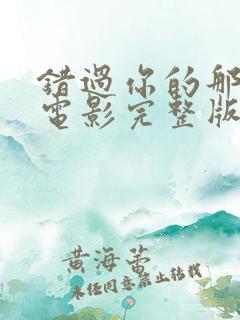 錯過你的那
電影完整版
黃海蕾
未經同意禁止轉載